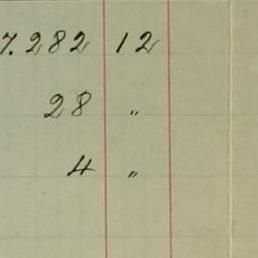 7.282 12
28 "
4 "